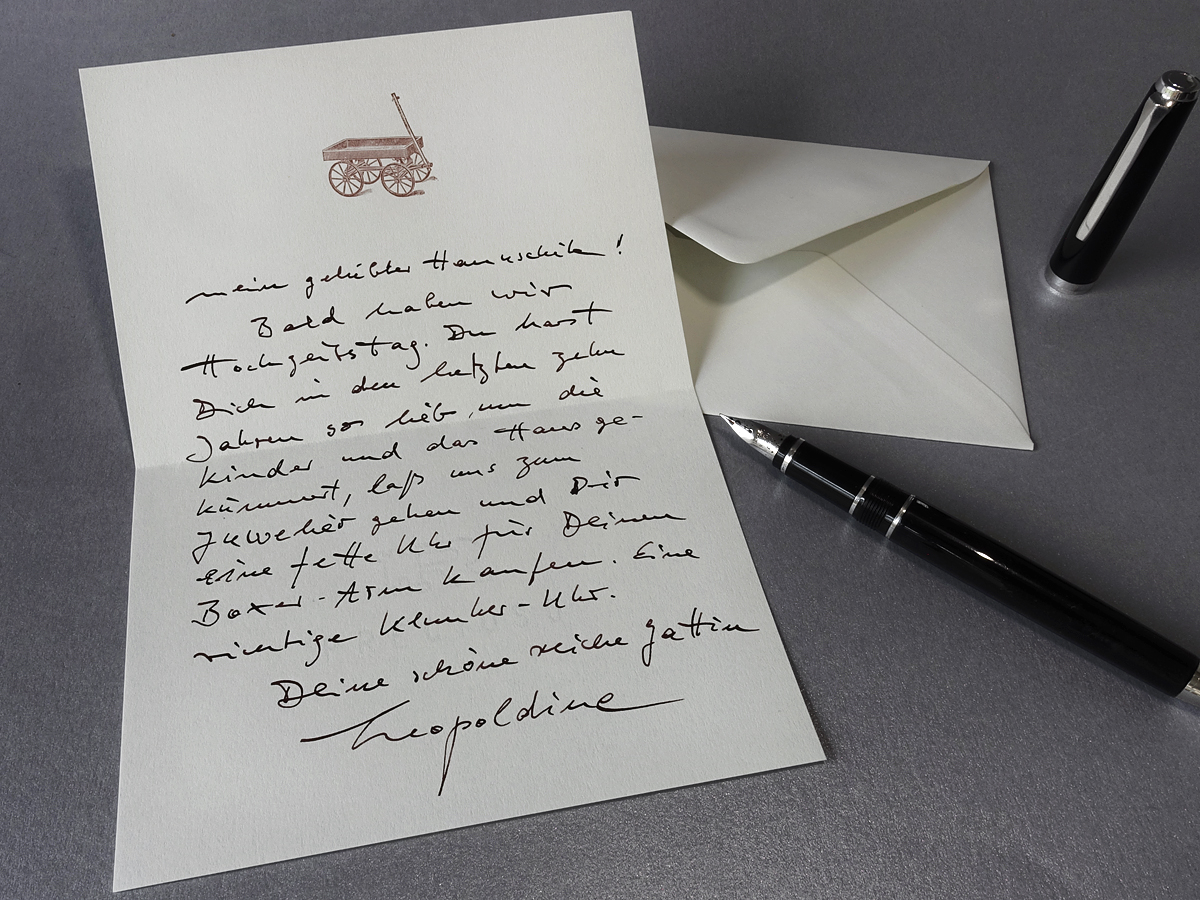 mein geliebter Hannschik!
Bald haben wir
Hochzeitstag. Du hast
Dich in den letzten zehn
Jahren so lieb um die
Kinder und das Haus ge-
kümmert, laß uns zum
Juwelier gehen und Dir
eine fette Uhr für Deinen
Boxer-Arm kaufen. Eine
richtige Klunker-Uhr.
Deine schöne reiche Gattin
Leopoldine